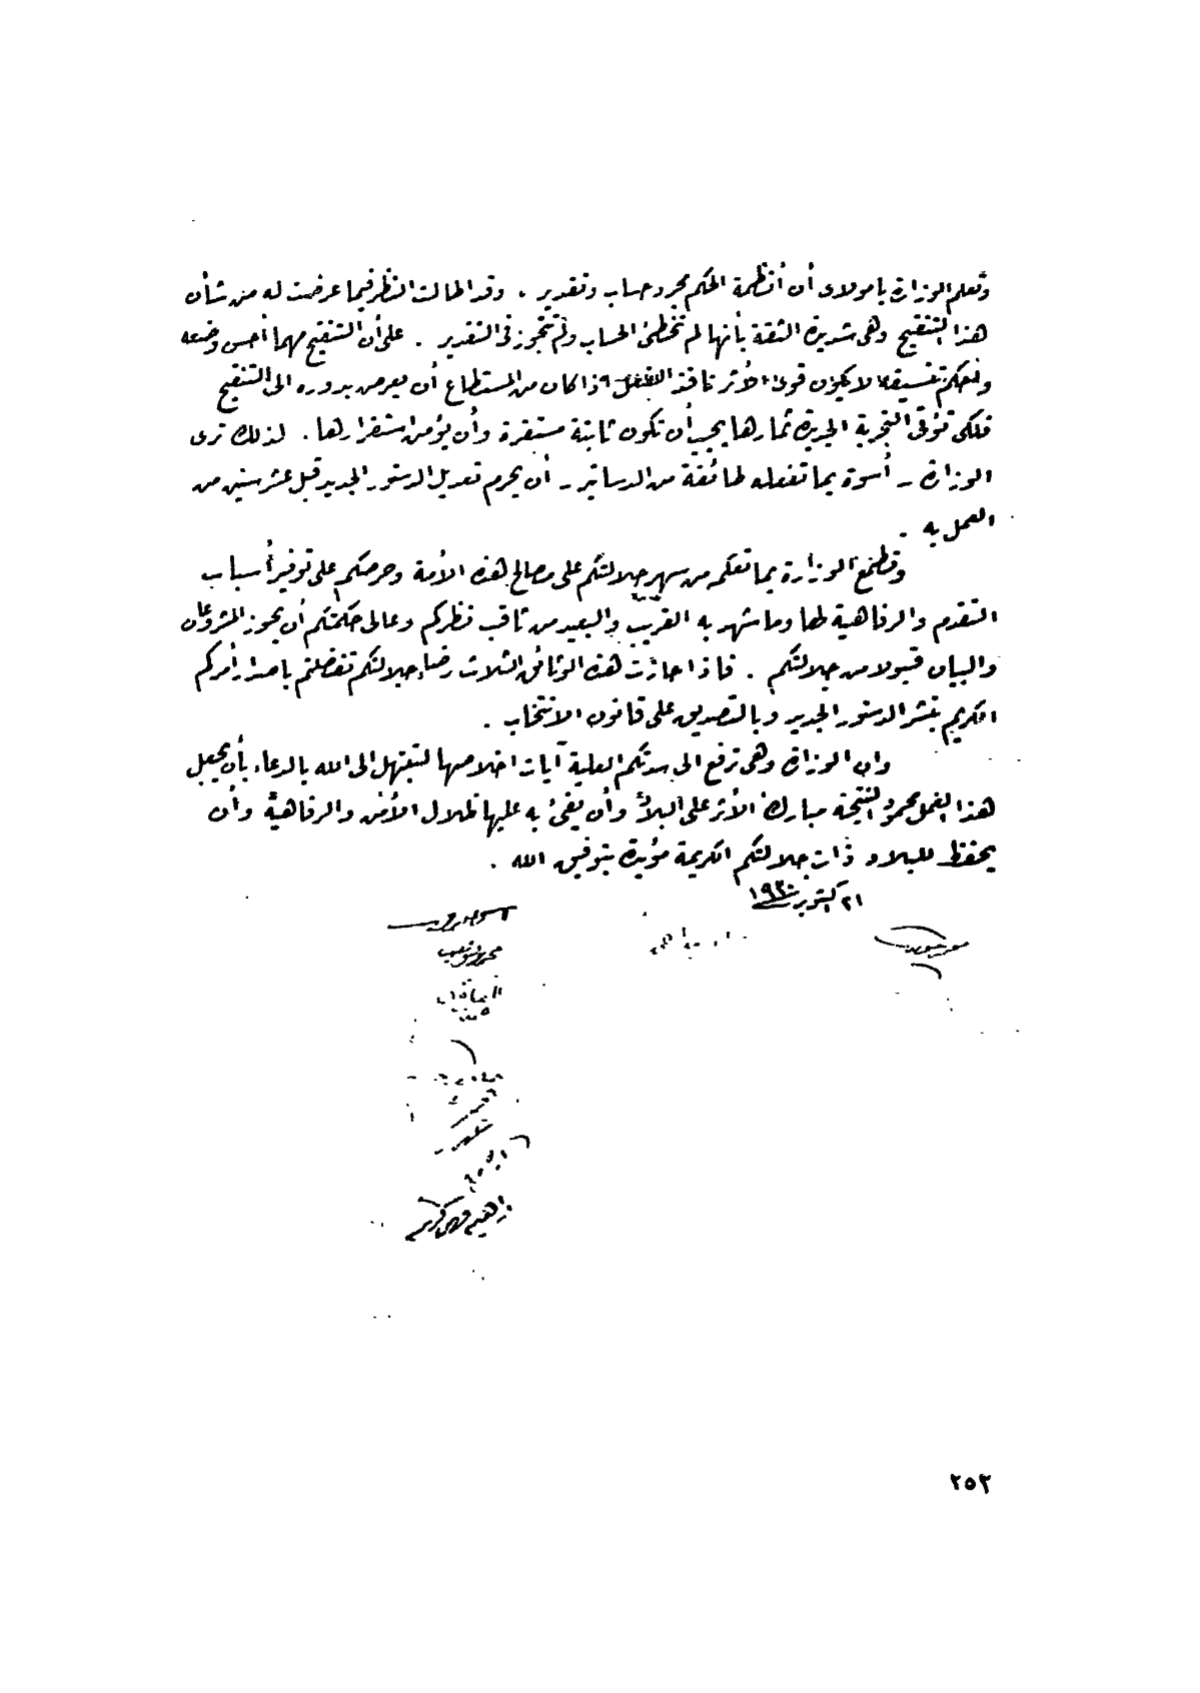 وتعلم الوزارة يا مولاى أن أنظمة الحكم مجرد حساب وتقدير . وقد أطالت النظر فيما عرضت له من شأن
هذا التنقيح وهى شديدة الثقة بأنها لم تخطئ الحساب ولم تتجوز فى التقدير . على أن التنقيح مهما أحسن وضعه
وأحكم تنسيقه لا يكون قوى الأثر نافذ الفعل إذا كان من المستطاع أن يعرض بدوره الى التنقيح
فلكى تؤتى التجربة الجديدة ثمارها يجب أن تكون ثابتة مستقرة وأن يؤمن استقرارها . لذلك ترى
الوزارة - أسوة بما تفعله طائفة من الدساتير - أن يحرم تعديل الدستور الجديد قبل عشر سنين من
العمل به .
وتطمع الوزارة بما تعلم من سهر جلالتكم على مصالح هذه الأمة وحرصكم على توفير أسباب
التقدم والرفاهية لها وما شهد به القريب والبعيد من ثاقب نظركم وعالى حكمتكم أن يحوز المشروعان
والبيان قبولا من جلالتكم . فاذا حازت هذه الوثائق الثلاث رضاء جلالتكم تفضلتم باصدار أمركم
الكريم بنشر الدستور الجديد وبالتصديق على قانون الانتخاب .
وان الوزارة وهى ترفع الى سدتكم العلية آيات اخلاصها لتبتهل الى الله بالدعاء بأن يجعل
هذا العمل محمود النتيجة مبارك الأثر على البلاد وأن يفئ به عليها ظلال الأمن والرفاهية وأن
يحفظ للبلاد ذات جلالتكم الكريمة مؤيدة بتوفيق الله .
٢١ أكتوبر ١٩٣٠
ابراهيم فهمى كريم
٢٥٢